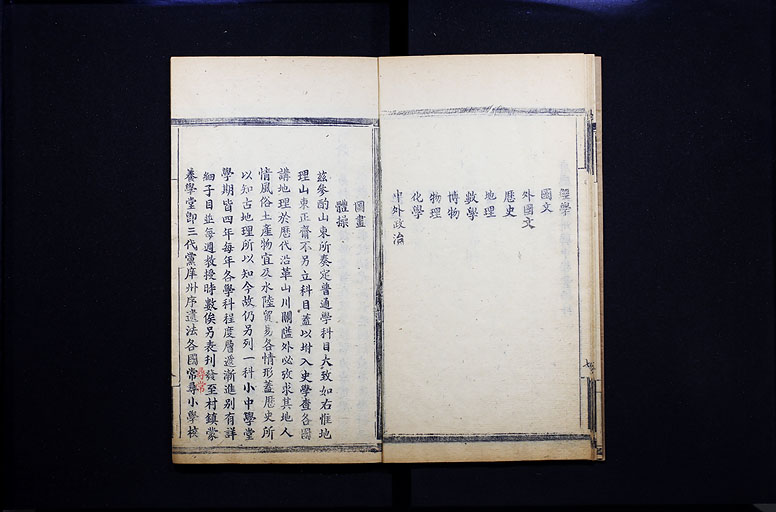 理學
國文
外國文
歷史
地理
數學
博物
物理
化學
中外政治
圖畫
體操
茲參酌山東所奏定普通學科目大致如右惟地
理山東正齋不另立科目蓋以坿入史學查各國
講地理於歷代沿革山川關隘外必攷求其地人
情風俗土產物宜及水陸貿易各情形蓋歷史所
以知古地理所以知今故仍另列一科小中學堂
學期皆四年每年各學科程度層遞漸進別有詳
細子目並每週教授時數俟另表刊發至村鎮蒙
養學堂卽三代黨庠州序遺法各國常尋小學校
尋常